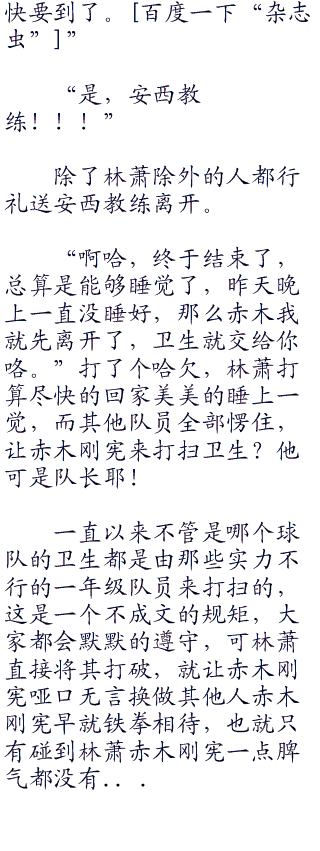 快要到了。[百度一下“杂志
虫”]”
“是，安西教
练！！！”
除了林萧除外的人都行
礼送安西教练离开。
“啊哈，终于结束了，
总算是能够睡觉了，昨天晚
上一直没睡好，那么赤木我
就先离开了，卫生就交给你
咯。”打了个哈欠，林萧打
算尽快的回家美美的睡上一
觉，而其他队员全部愣住，
让赤木刚宪来打扫卫生？他
可是队长耶！
一直以来不管是哪个球
队的卫生都是由那些实力不
行的一年级队员来打扫的，
这是一个不成文的规矩，大
家都会默默的遵守，可林萧
直接将其打破，就让赤木刚
宪哑口无言换做其他人赤木
刚宪早就铁拳相待，也就只
有碰到林萧赤木刚宪一点脾
气都没有．．．